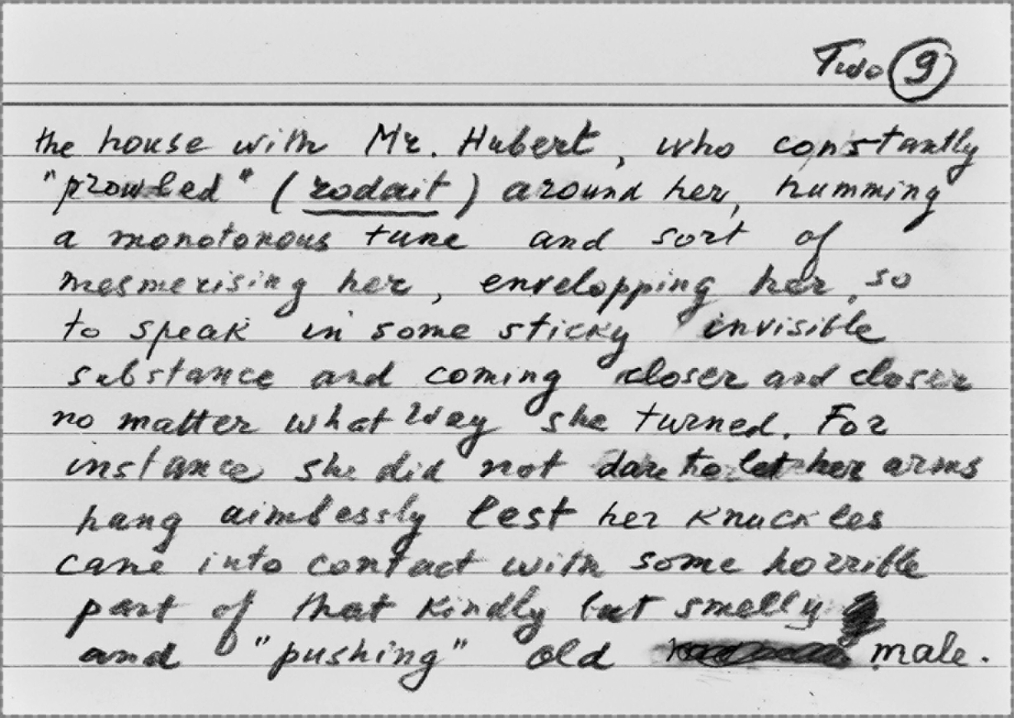 Two 9
the house with Mr. Hubert, who constantly
"prowled" (rodait) around her, humming
a monotonous tune and sort of
mesmerising her, envelopping her, so
to speak in some sticky invisible
substance and coming closer and closer
no matter what way she turned. For
instance she did not dare to let her arms
hang aimlessly lest her knuckles
came into contact with some horrible
part of that kindly but smelly
and "pushing" old male.